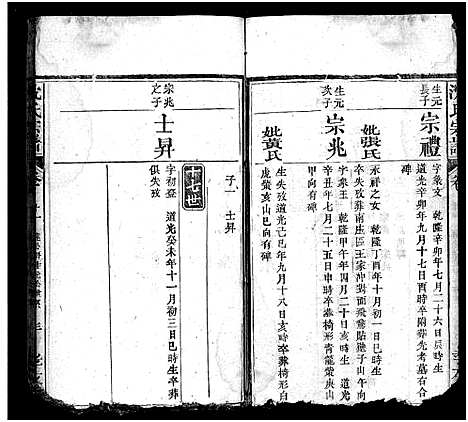 沈氏宗譜
生元長子 宗禮
字彖文 乾隆辛卯年七月二十六日辰時生
道光辛卯年九月十七日酉時卒附葬先考墓右
妣張氏
永祥之女 乾隆丁酉年十月初一日巳時生
卒失攷葬南庄區王家沖對面飛鵞貼獴子山巳
甲向有碑
生元次子 宗兆
字象玉 乾隆甲午年四月二十日亥時生 道光
辛丑年七月二十五日申時卒葬椅形青龍藂庚山
妣黃氏
生失攷道光己巳年九月十八日亥時卒葬椅形白
虎螢亥山巳向有碑
子一 士昇
宗兆之子 士昇
字初臺 道光癸未年十一月初三日巳時生卒葬
俱失攷
沈氏宗譜